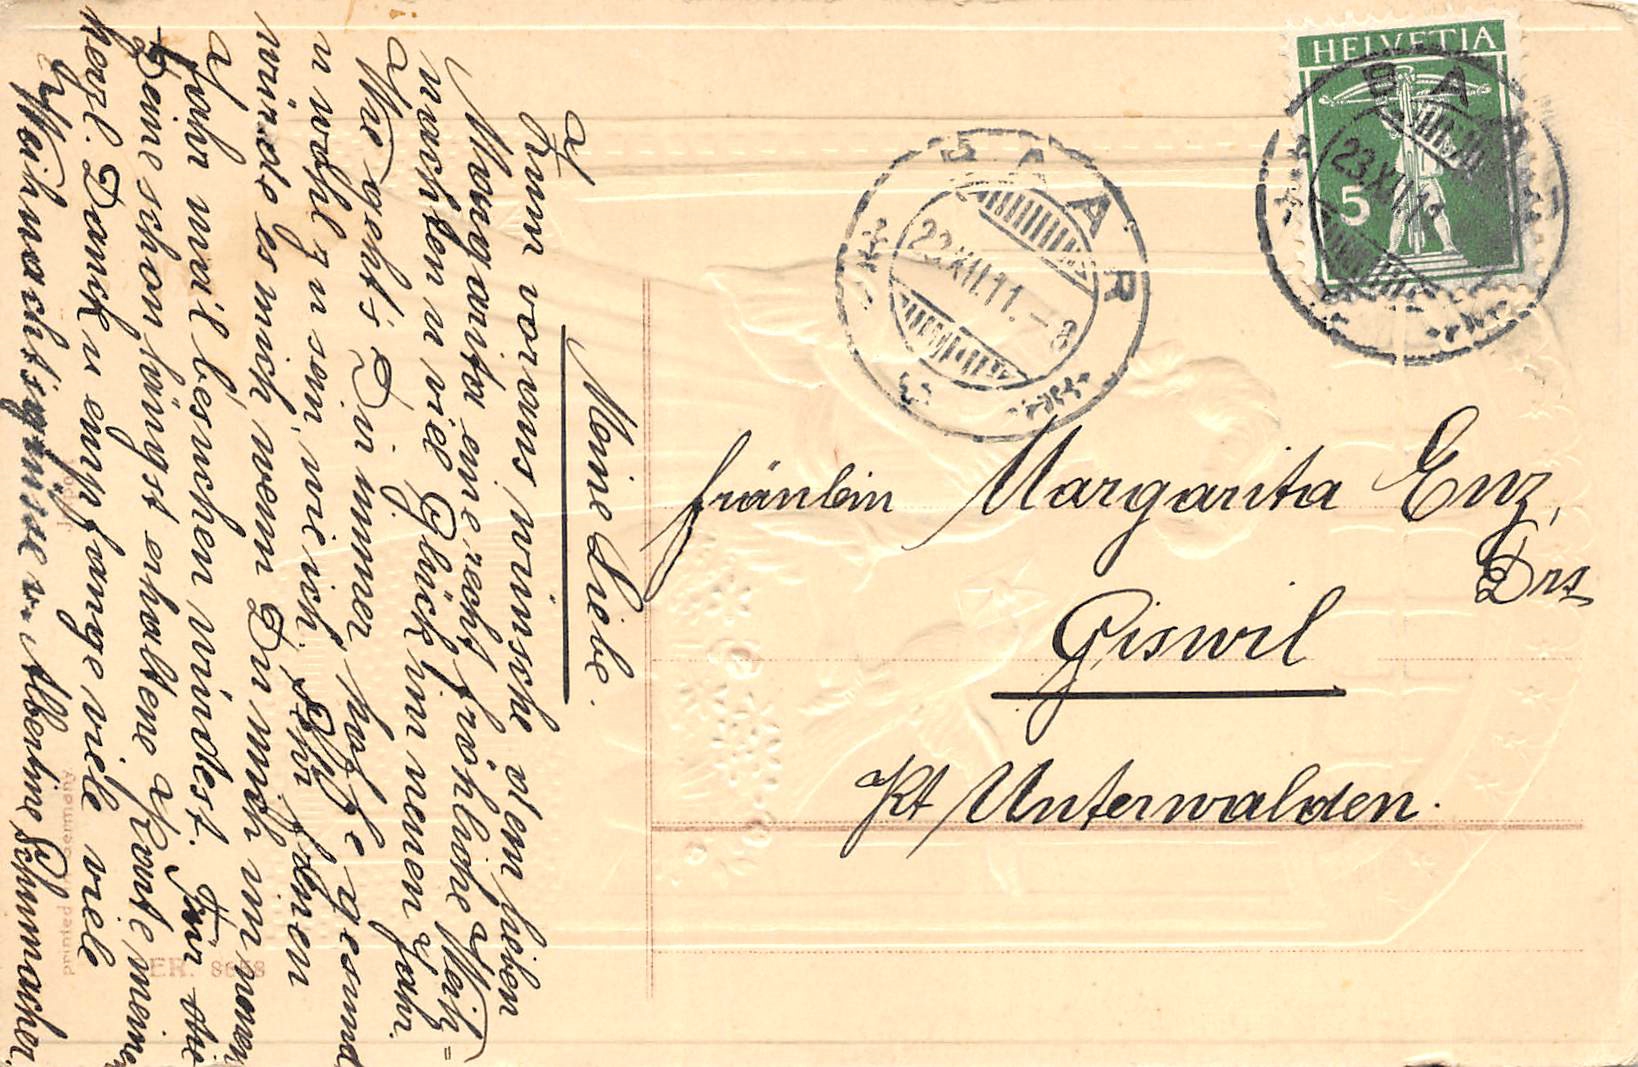 Meine Liebe.
Zum voraus wünsche dem lieben
Margarita eine recht fröhliche Weih=
nachten u viel Glück im neuen Jahr.
Wie geht's Dir immer, hoffe gesund
u wohl zu sein, wie ich. Sehr freuen
würde es mich, wenn Du mich im neuen
Jahr mal besuchen würdest. Für die
Deine schon längst erhaltene Karte meinen
herzl. Dank u empfange viele viele
Weihnachtsgrüsse v. Albertine Schumacher.
HELVETIA
5
BAAR
23.XII.11
BAAR
23.XII.11.-8
Fräulein Margarita Enz,
Drs
Giswil
Kt Unterwalden.
Printed Germany.
ER.